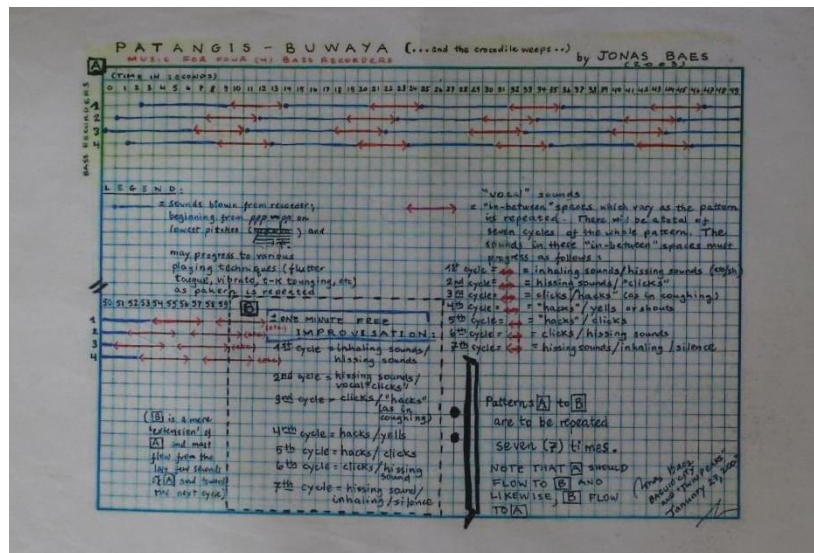 PATANGIS - BUWAYA (...and the crocodile weeps..)
MUSIC FOR FOUR (4) BASS RECORDERS
by JONAS BAES
(2003)
A
(TIME IN SECONDS)
0 1 2 3 4 5 6 7 8 9 10 11 12 13 14 15 16 17 18 19 20 21 22 23 24 25 26 27 28 29 30 31 32 33 34 35 36 37 38 39 40 41 42 43 44 45 46 47 48 49
BASS RECORDERS
1
2
3
4
LEGEND:
= sounds blown from recorder;
beginning from ppp on
lowest pitches ( ) and
may progress to various
playing techniques (flutter
tongue, vibrato, t-k tounging, etc)
as pattern is repeated
"vocal" sounds
= "in-between" spaces which vary as the pattern
is repeated. There will be a total of
seven cycles of the whole pattern. The
sounds in these "in-between" spaces must
progress as follows:
1st cycle = = inhaling sounds/hissing sounds
2nd cycle = = hissing sounds/"clicks"
3rd cycle = = clicks/"hacks" (as in coughing)
4th cycle = = "hacks"/yells or shouts
5th cycle = = "hacks"/clicks
6th cycle = = clicks/hissing sounds
7th cycle = = hissing sounds/inhaling/silence
50 51 52 53 54 55 56 57 58 59
B
1
2
3
4
ONE MINUTE FREE
IMPROVISATION:
1st cycle = inhaling sounds/
hissing sounds
2nd cycle = hissing sounds/
vocal "clicks"
3rd cycle = clicks/"hacks"
(as in
coughing)
4th cycle = hacks/yells
5th cycle = hacks/clicks
6th cycle = clicks/hissing
sound
7th cycle = hissing sound/
inhaling/silence
(B is a mere
'extension' of
A and must
flow from the
last few seconds
of A and toward
the next cycle)
Patterns A to B
are to be repeated
seven (7) times.
NOTE THAT A SHOULD
FLOW TO B AND
LIKEWISE, B FLOW
TO A
Jonas Baes
BAGUIO CITY
and "TWIN PEAKS"
January 27,